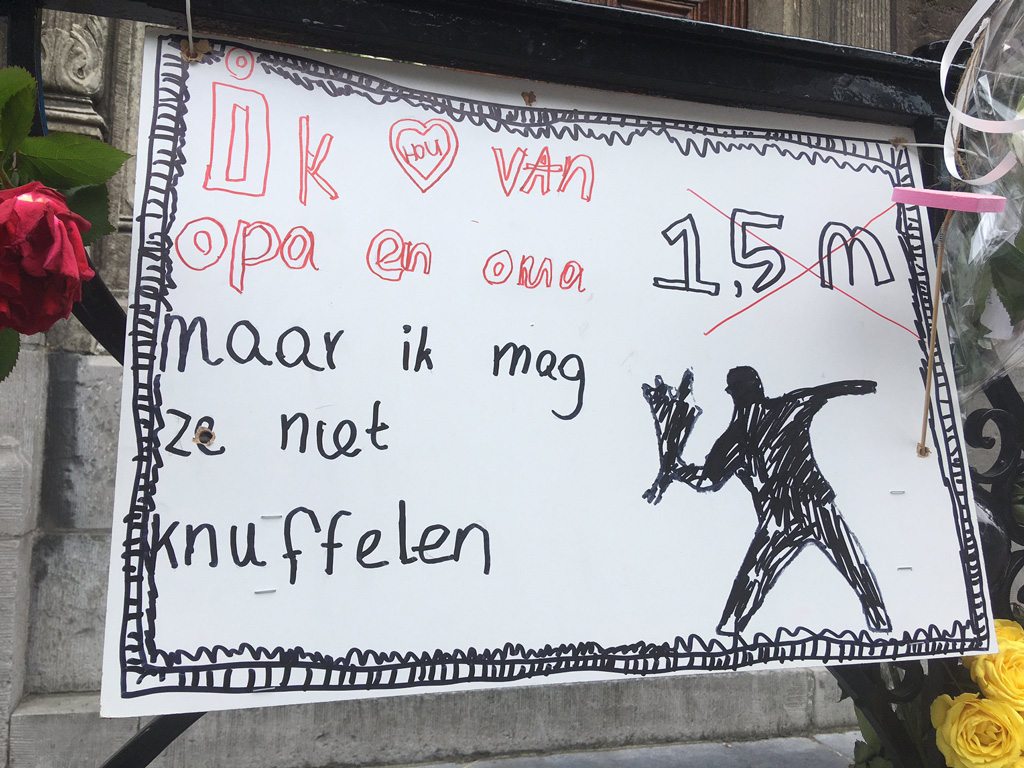 ik HOU van
opa en oma
1,5 m
maar ik mag
ze niet
knuffelen